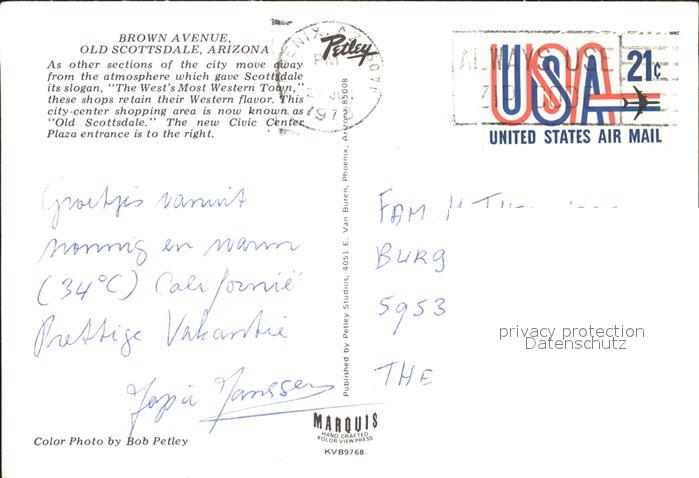 BROWN AVENUE,
OLD SCOTTSDALE, ARIZONA
As other sections of the city move away
from the atmosphere which gave Scottsdale
its slogan, "The West's Most Western Town,"
these shops retain their Western flavor. This
city-center shopping area is now known as
"Old Scottsdale." The new Civic Center
Plaza entrance is to the right.
Petley
PM
ALWAYS USE
ZIP CODE
USA 21c
UNITED STATES AIR MAIL
Groetjes vanuit
zonnig en warm
(34°C) Californië
Prettige Vakantie
Janssen
Published by Petley Studios, 4051 E. Van Buren, Phoenix, Arizona 85008
FAM.
BURG
5953
THE
privacy protection
Datenschutz
Color Photo by Bob Petley
MARQUIS
HAND CRAFTED
KOLOR VIEW PRESS
KVB9768